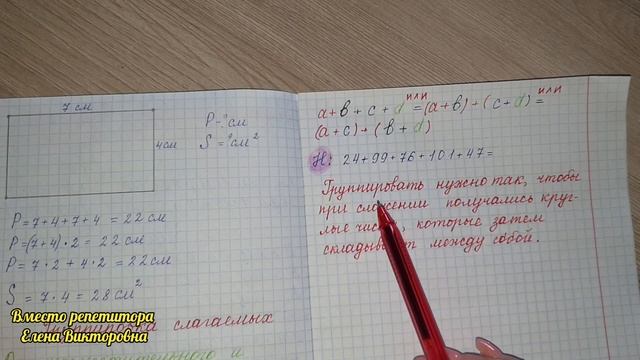 7 см
4см
P-?см
S=?см²
P=7+4+7+4=22 см
P=(7+4)·2=22 см
P=7·2+4·2=22см
S=7·4=28 см²
Группировка слагаемых
и
a+b+c+d или =(a+b)+(c+d)= или
(a+c)+(b+d)
Н: 24+99+76+101+47=
Группировать нужно так, чтобы
при сложении получались круг-
лые которые затем
между собой.
Вместо репетитора
Елена Викторовна